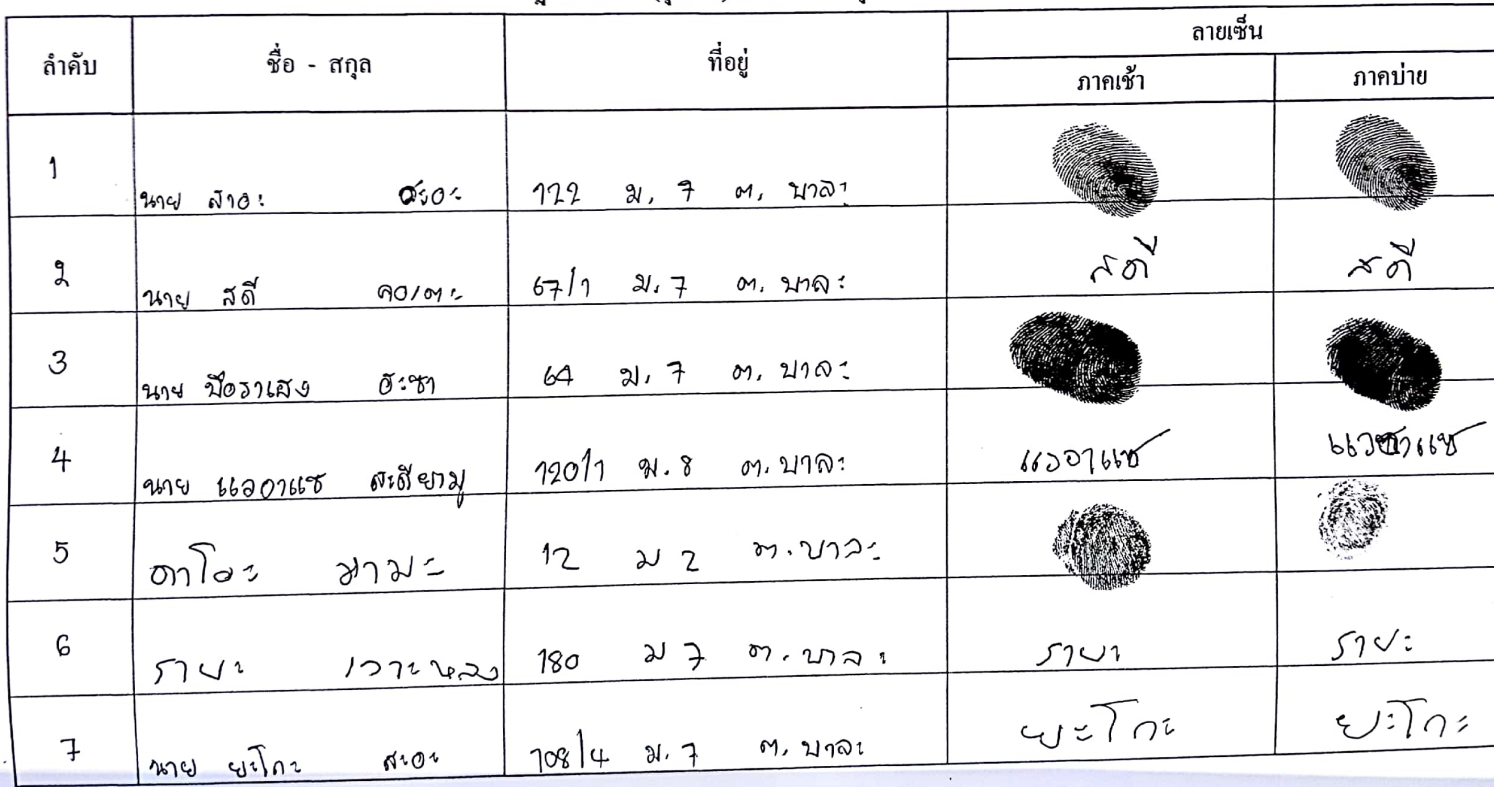 ลำดับ ชื่อ - สกุล ที่อยู่ ลายเซ็น
ภาคเช้า ภาคบ่าย
1 นาย สาอะ สะอะ 122 ม. 7 ต. บาละ
2 นาย สดี คอเตะ 67/1 ม. 7 ต. บาละ สดี สดี
3 นาย บือราเฮง อะซา 64 ม. 7 ต. บาละ
4 นาย แวอาแซ สะตียามู 120/1 ม. 8 ต. บาละ แวอาแซ แวอาแซ
5 ตาโละ มามะ 12 ม 2 ต. บาละ
6 รายะ เวาะหลง 180 ม 7 ต. บาละ รายะ รายะ
7 นาย ยะโกะ สะอะ 108/4 ม. 7 ต. บาละ ยะโกะ ยะโกะ